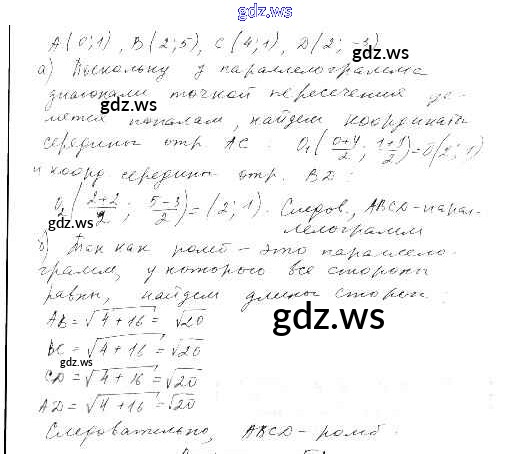 gdz.ws
A(0;1), B(2;5), C(4;1), D(2;-3)
gdz.ws
а) Поскольку у параллелограмма
диагонали точкой пересечения де-
gdz.ws
лятся пополам, найдем координаты
середины отр. AC: O₁(0+4/2; 1+1/2)=O(2;1)
и коорд середины отр. BD:
O₂(2+2/2; 5-3/2)=(2;1). Следов., ABCD-парал-
gdz.ws
лелограмм
б) Так как ромб - это параллело-
грамм, у которого все стороны
равны, найдем длины сторон:
AB=√4+16=√20
gdz.ws
BC=√4+16=√20
gdz.ws
CD=√4+16=√20
AD=√4+16=√20
Следовательно, ABCD-ромб.